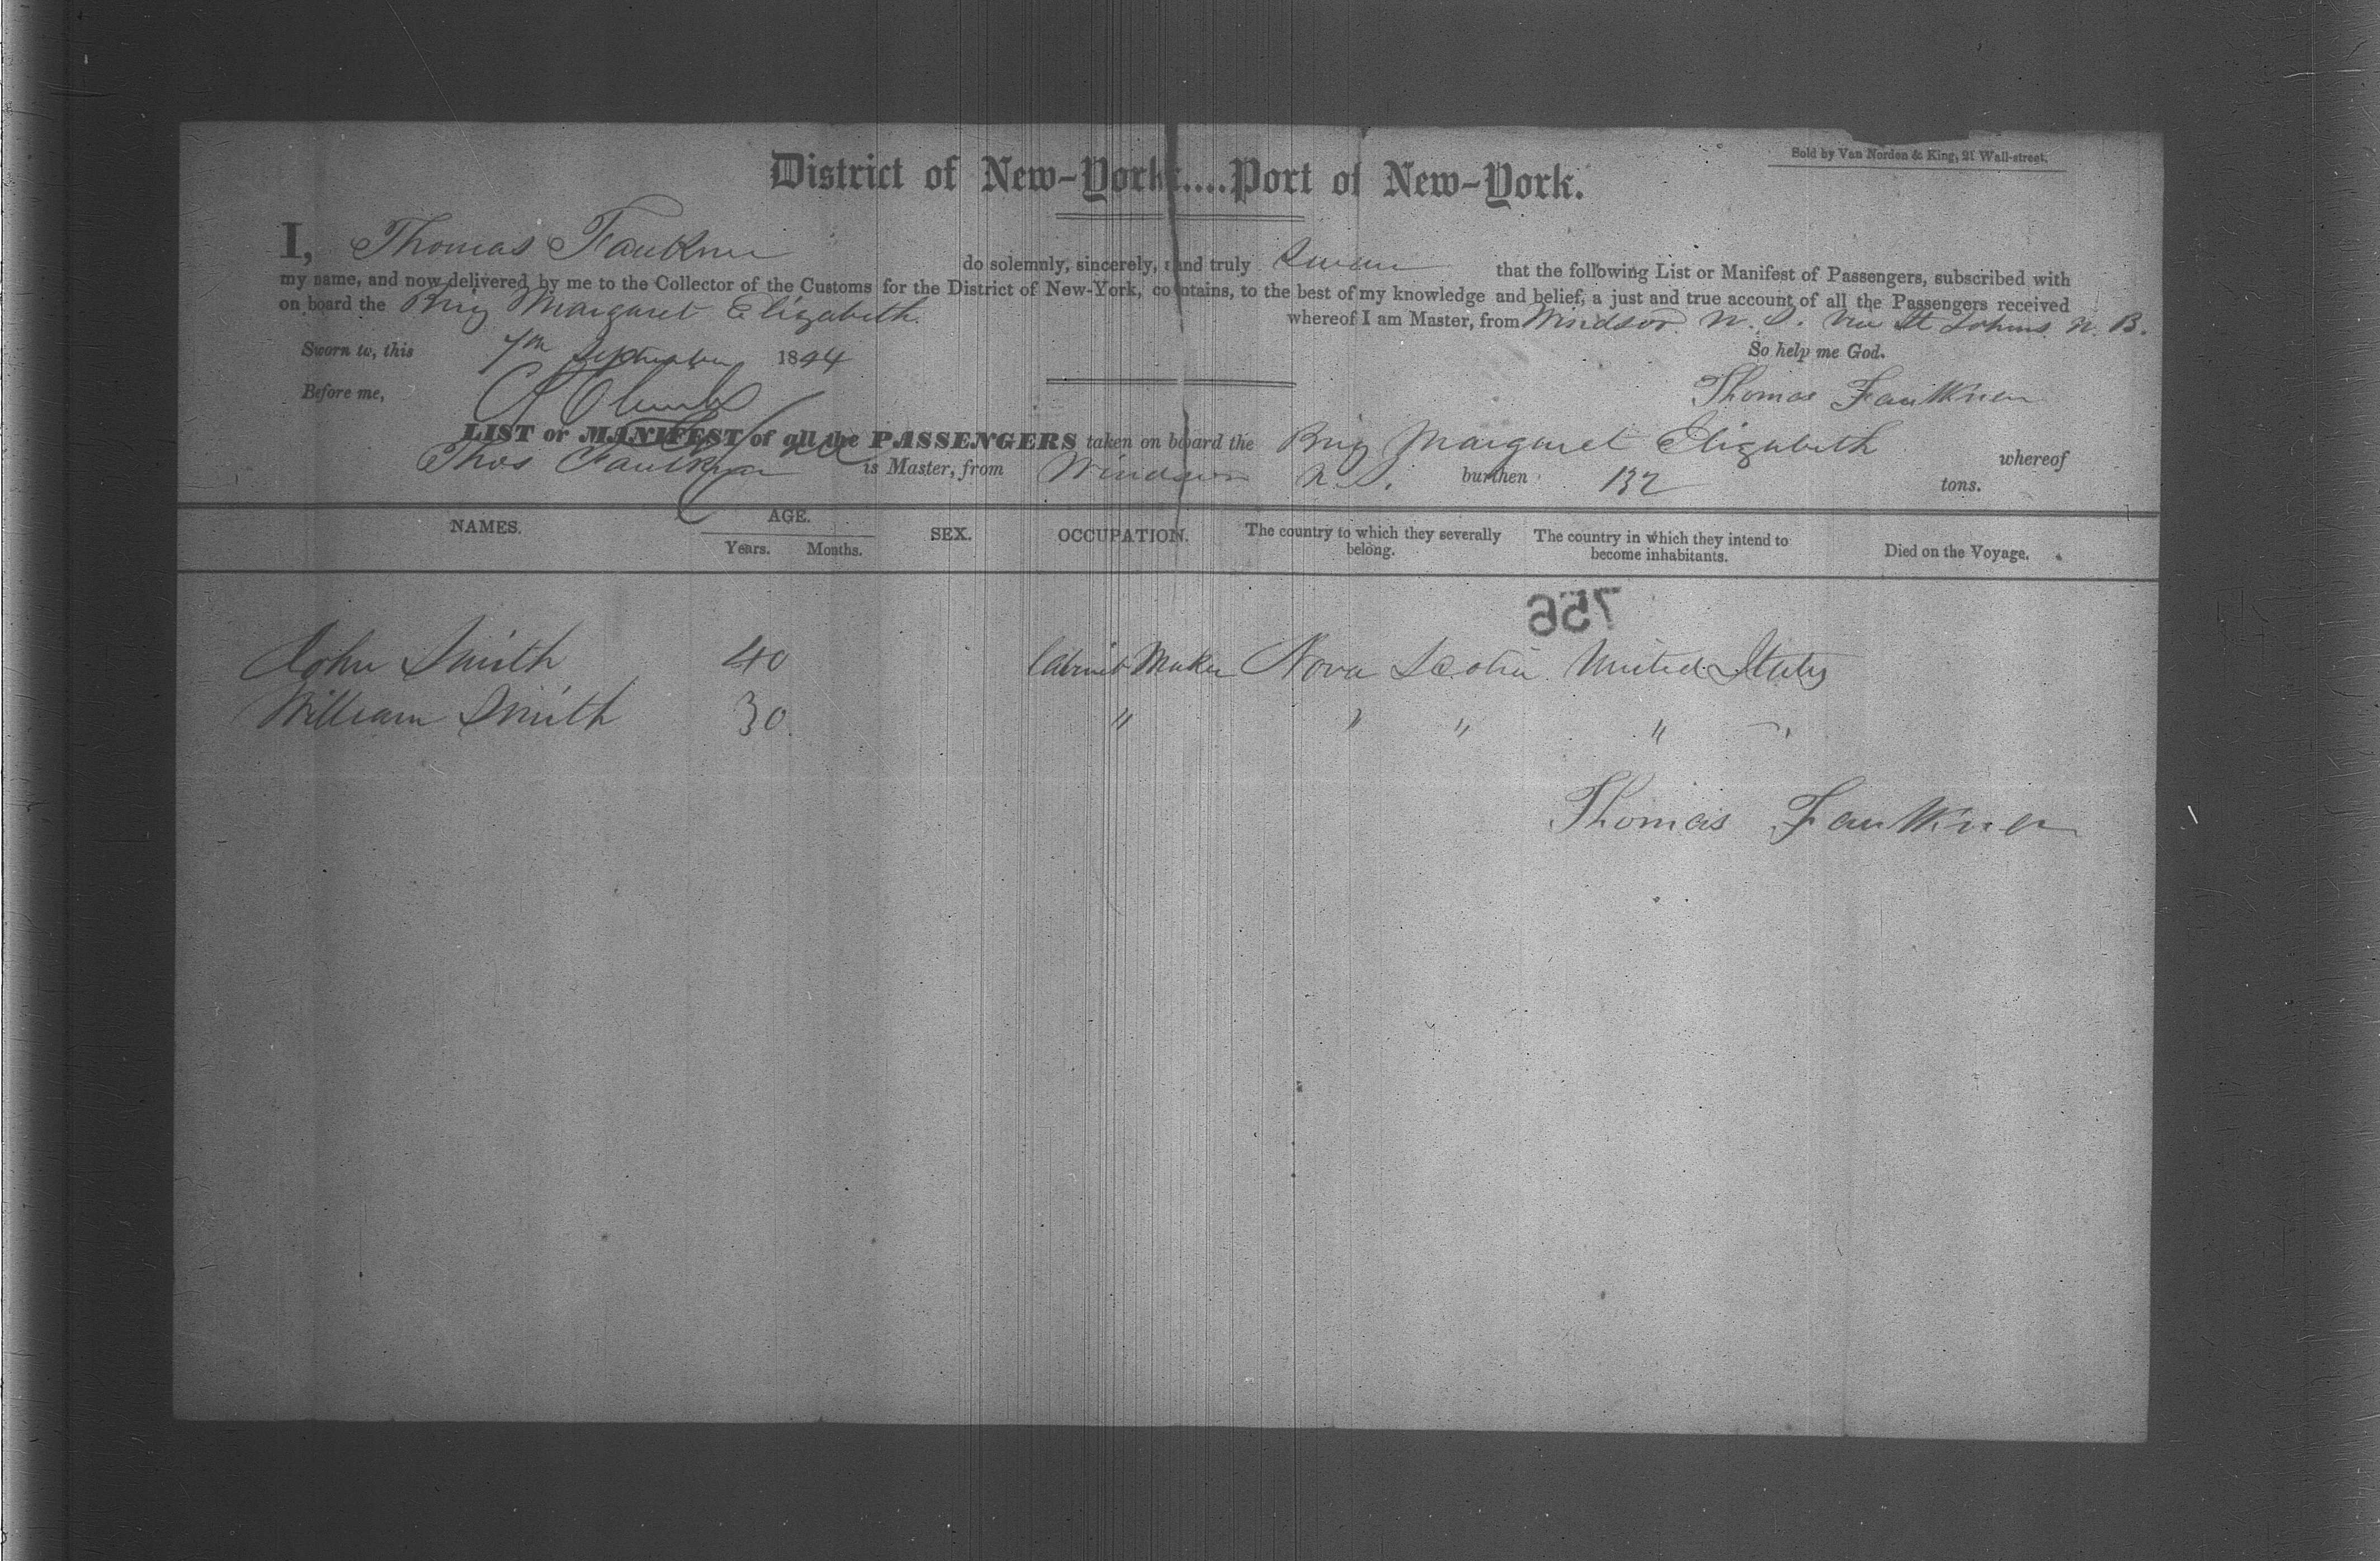 Sold by Van Norden & King, 21 Wall-street.
District of New-York....Port of New-York.
I, Thomas Faulkner do solemnly, sincerely, and truly Swear that the following List or Manifest of Passengers, subscribed with
my name, and now delivered by me to the Collector of the Customs for the District of New-York, contains, to the best of my knowledge and belief, a just and true account of all the Passengers received
on board the Brig Margaret Elizabeth. whereof I am Master, from Windsor N. S. via St Johns N. B.
Sworn to, this 7th September 1844
So help me God.
Before me,
Thomas Faulkner
LIST or MANIFEST of all the PASSENGERS taken on board the Brig Margaret Elizabeth whereof
Thos Faulkner is Master, from Windsor N. S. burthen 132 tons.
NAMES. AGE. SEX. OCCUPATION. The country to which they severally belong. The country in which they intend to become inhabitants. Died on the Voyage.
Years. Months.
756
John Smith 40 Cabinet Maker Nova Scotia United States
William Smith 30 " " " " "
Thomas Faulkner